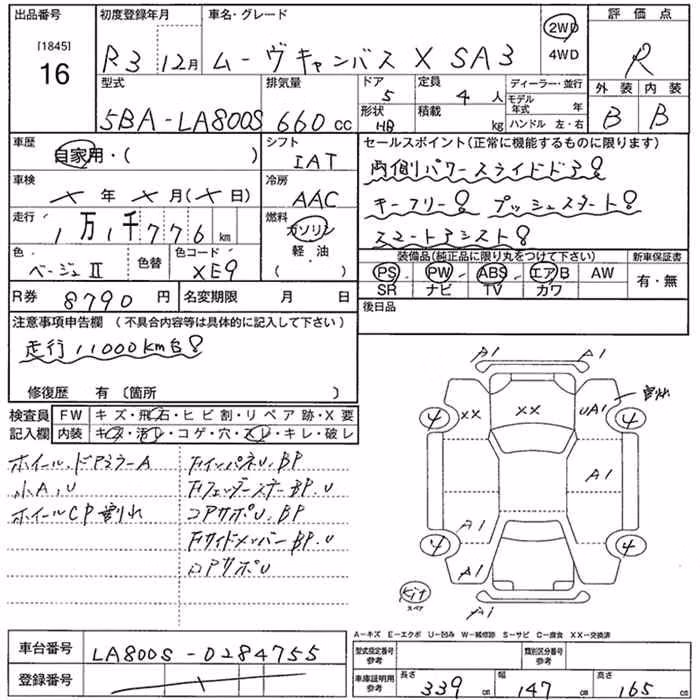 出品番号
[1845]
16
初度登録年月
R3 12月
車名・グレード
ムーヴキャンバス X SA3
2WD
4WD
評価点
R
外装 内装
B B
型式
5BA-LA800S
排気量
660 cc
ドア
5
定員
4 人
形状
HB
積載
kg
ディーラー・並行
モデル年式 年
ハンドル 左・右
車歴
自家用・( )
シフト
IAT
車検
× 年 × 月(× 日)
冷房
AAC
走行
1万1千776 km
燃料
ガソリン
軽油
( )
色
ベージュⅡ
色替
色コード
XE9
セールスポイント(正常に機能するものに限ります)
両側パワースライドドア!
キーフリー! プッシュスタート!
スマートアシスト!
装備品(純正品に限り丸をつけて下さい)
PS PW ABS エアB AW
SR ナビ TV カワ
新車保証書
有・無
後日品
R券 8790 円
名変期限 月 日
注意事項申告欄 (不具合内容等は具体的に記入して下さい)
走行11000km台!
修復歴 有〔箇所 〕
検査員記入欄
FW キズ・飛石・ヒビ割・リペア跡・X要
内装 キズ・汚レ・コゲ・穴・スレ・キレ・破レ
ホイール、ドアミラーA
小A,U
ホイールCP割れ
FインパネU、BP
コアサポU、BP
FサイドメンバーBP、U
ロアサポU
A1 A1
XX XX UA1
割れ
4 4
A1
A1
4 4
A1 A1
A1
Kit
スペア
A−キズ E−エクボ U−凹み W−補修跡 S−サビ C−腐食 XX−交換済
車台番号
LA800S-0284755
登録番号
型式指定番号
参考
類別区分番号
参考
車庫証明用
参考
長さ 339 cm
幅 147 cm
高さ 165 cm